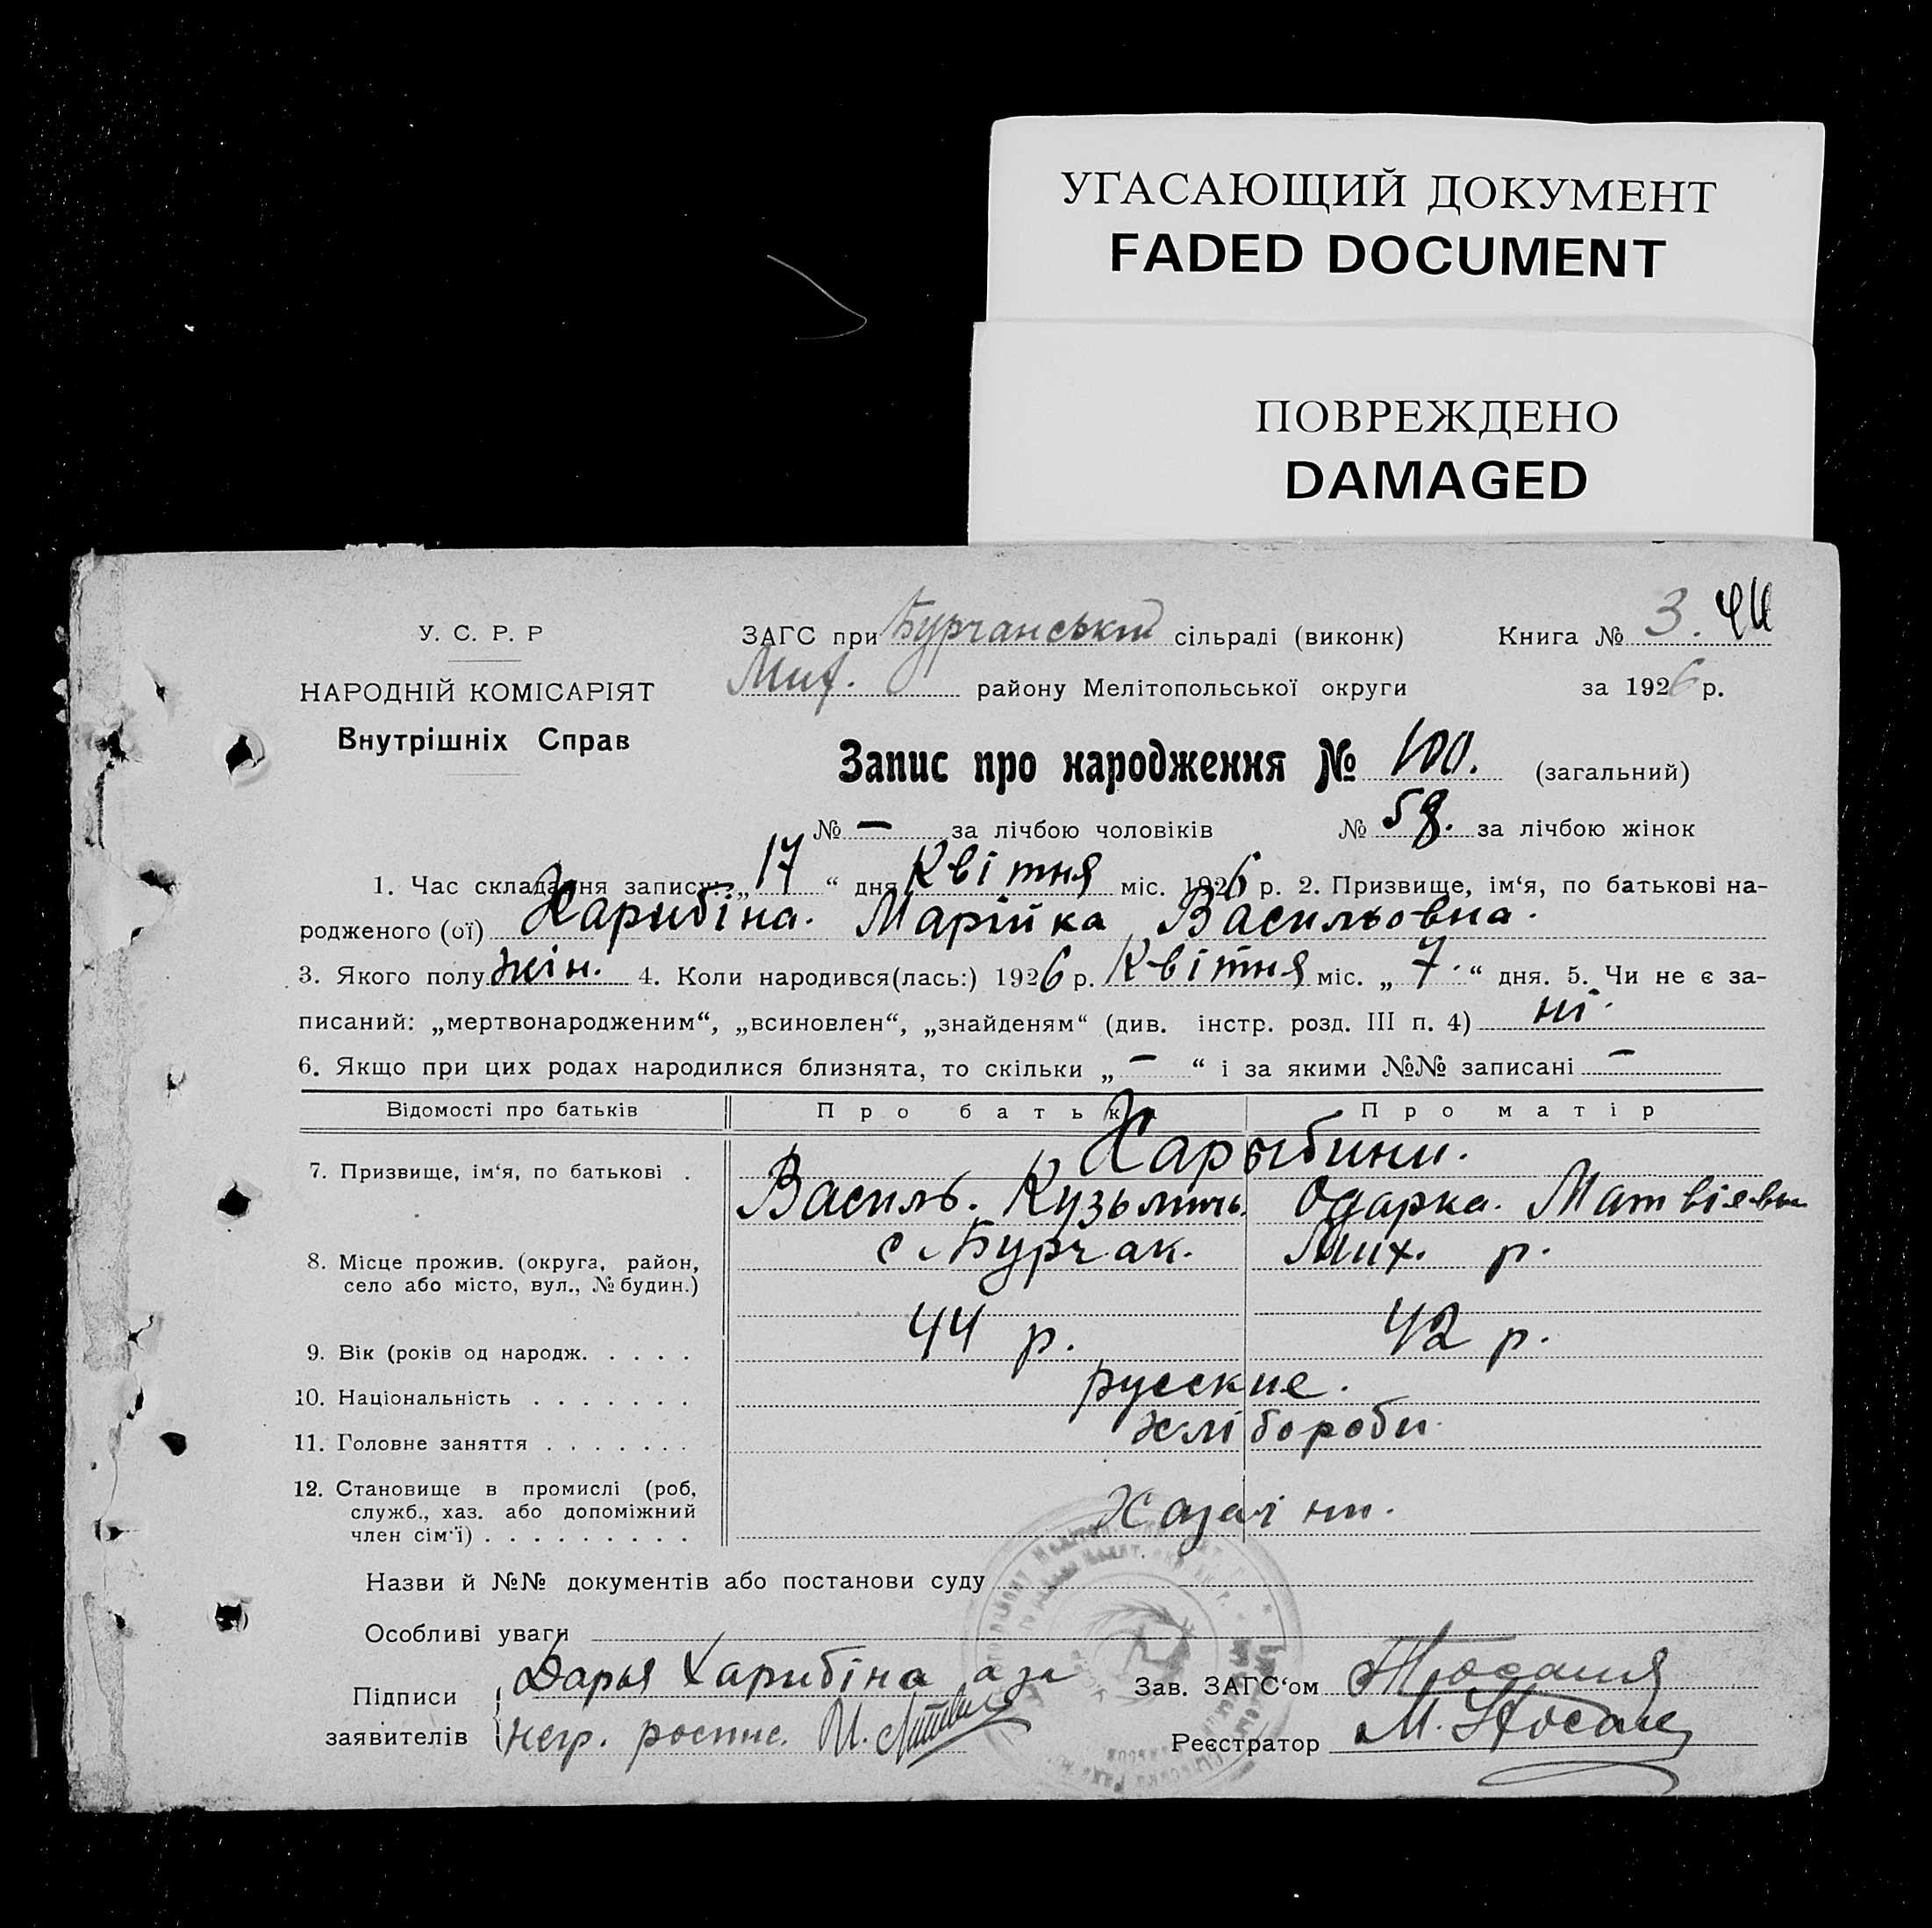 УГАСАЮЩИЙ ДОКУМЕНТ
FADED DOCUMENT
ПОВРЕЖДЕНО
DAMAGED
У. С. Р. Р
НАРОДНІЙ КОМІСАРІЯТ
Внутрішніх Справ
ЗАГС при Бурчанській сільраді (виконк)
Мих. району Мелітопольської округи
Книга № 3.
за 1926 р.
Запис про народження № 100. (загальний)
№ — за лічбою чоловіків № 58. за лічбою жінок
1. Час складання запису: „17“ дня Квітня міс. 1926 р. 2. Призвище, ім‘я, по батькові на-
родженого (ої) Харибіна. Марійка Васильовна.
3. Якого полу жін. 4. Коли народився(лась:) 1926 р. Квітня міс. „7.“ дня. 5. Чи не є за-
писаний: „мертвонародженим“, „всиновлен“, „знайденям“ (див. інстр. розд. III п. 4) ні.
6. Якщо при цих родах народилися близнята, то скільки „—“ і за якими №№ записані —
Відомості про батьків Про батька Про матір
Харыбини.
7. Призвище, ім‘я, по батькові . Василь. Кузьмичь. Одарка. Матвіявн
8. Місце прожив. (округа, район, с. Бурчак. Мих. р.
село або місто, вул., № будин.)
9. Вік (років од народж. . . . . 44 р. 42 р.
10. Національність . . . . . . . русские.
11. Головне заняття . . . . . . . хлібороби
12. Становище в промислі (роб,
служб., хаз. або допоміжний
член сім‘ї) . . . . . . . . . Хазаіни.
Назви й №№ документів або постанови суду
Особливі уваги
Підписи Дарья Харибіна а за
заявителів негр. роспис.
Зав. ЗАГС‘ом
Реєстратор М. Носач